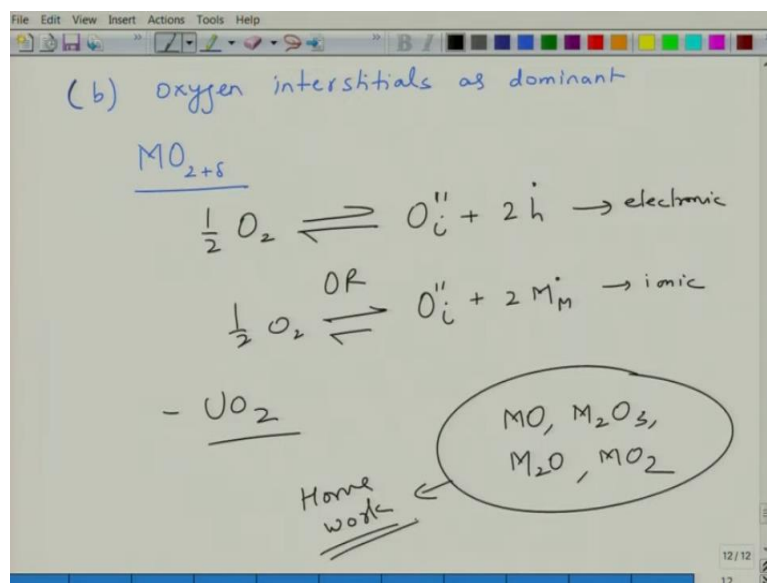 File Edit View Insert Actions Tools Help
(b) oxygen interstitials as dominant
MO₂₊δ
½ O₂ ⇌ Oᵢ'' + 2 ḣ → electronic
OR
½ O₂ ⇌ Oᵢ'' + 2 Ṁ_M → ionic
- UO₂
MO, M₂O₃,
M₂O, MO₂
Home
work
12/12
12